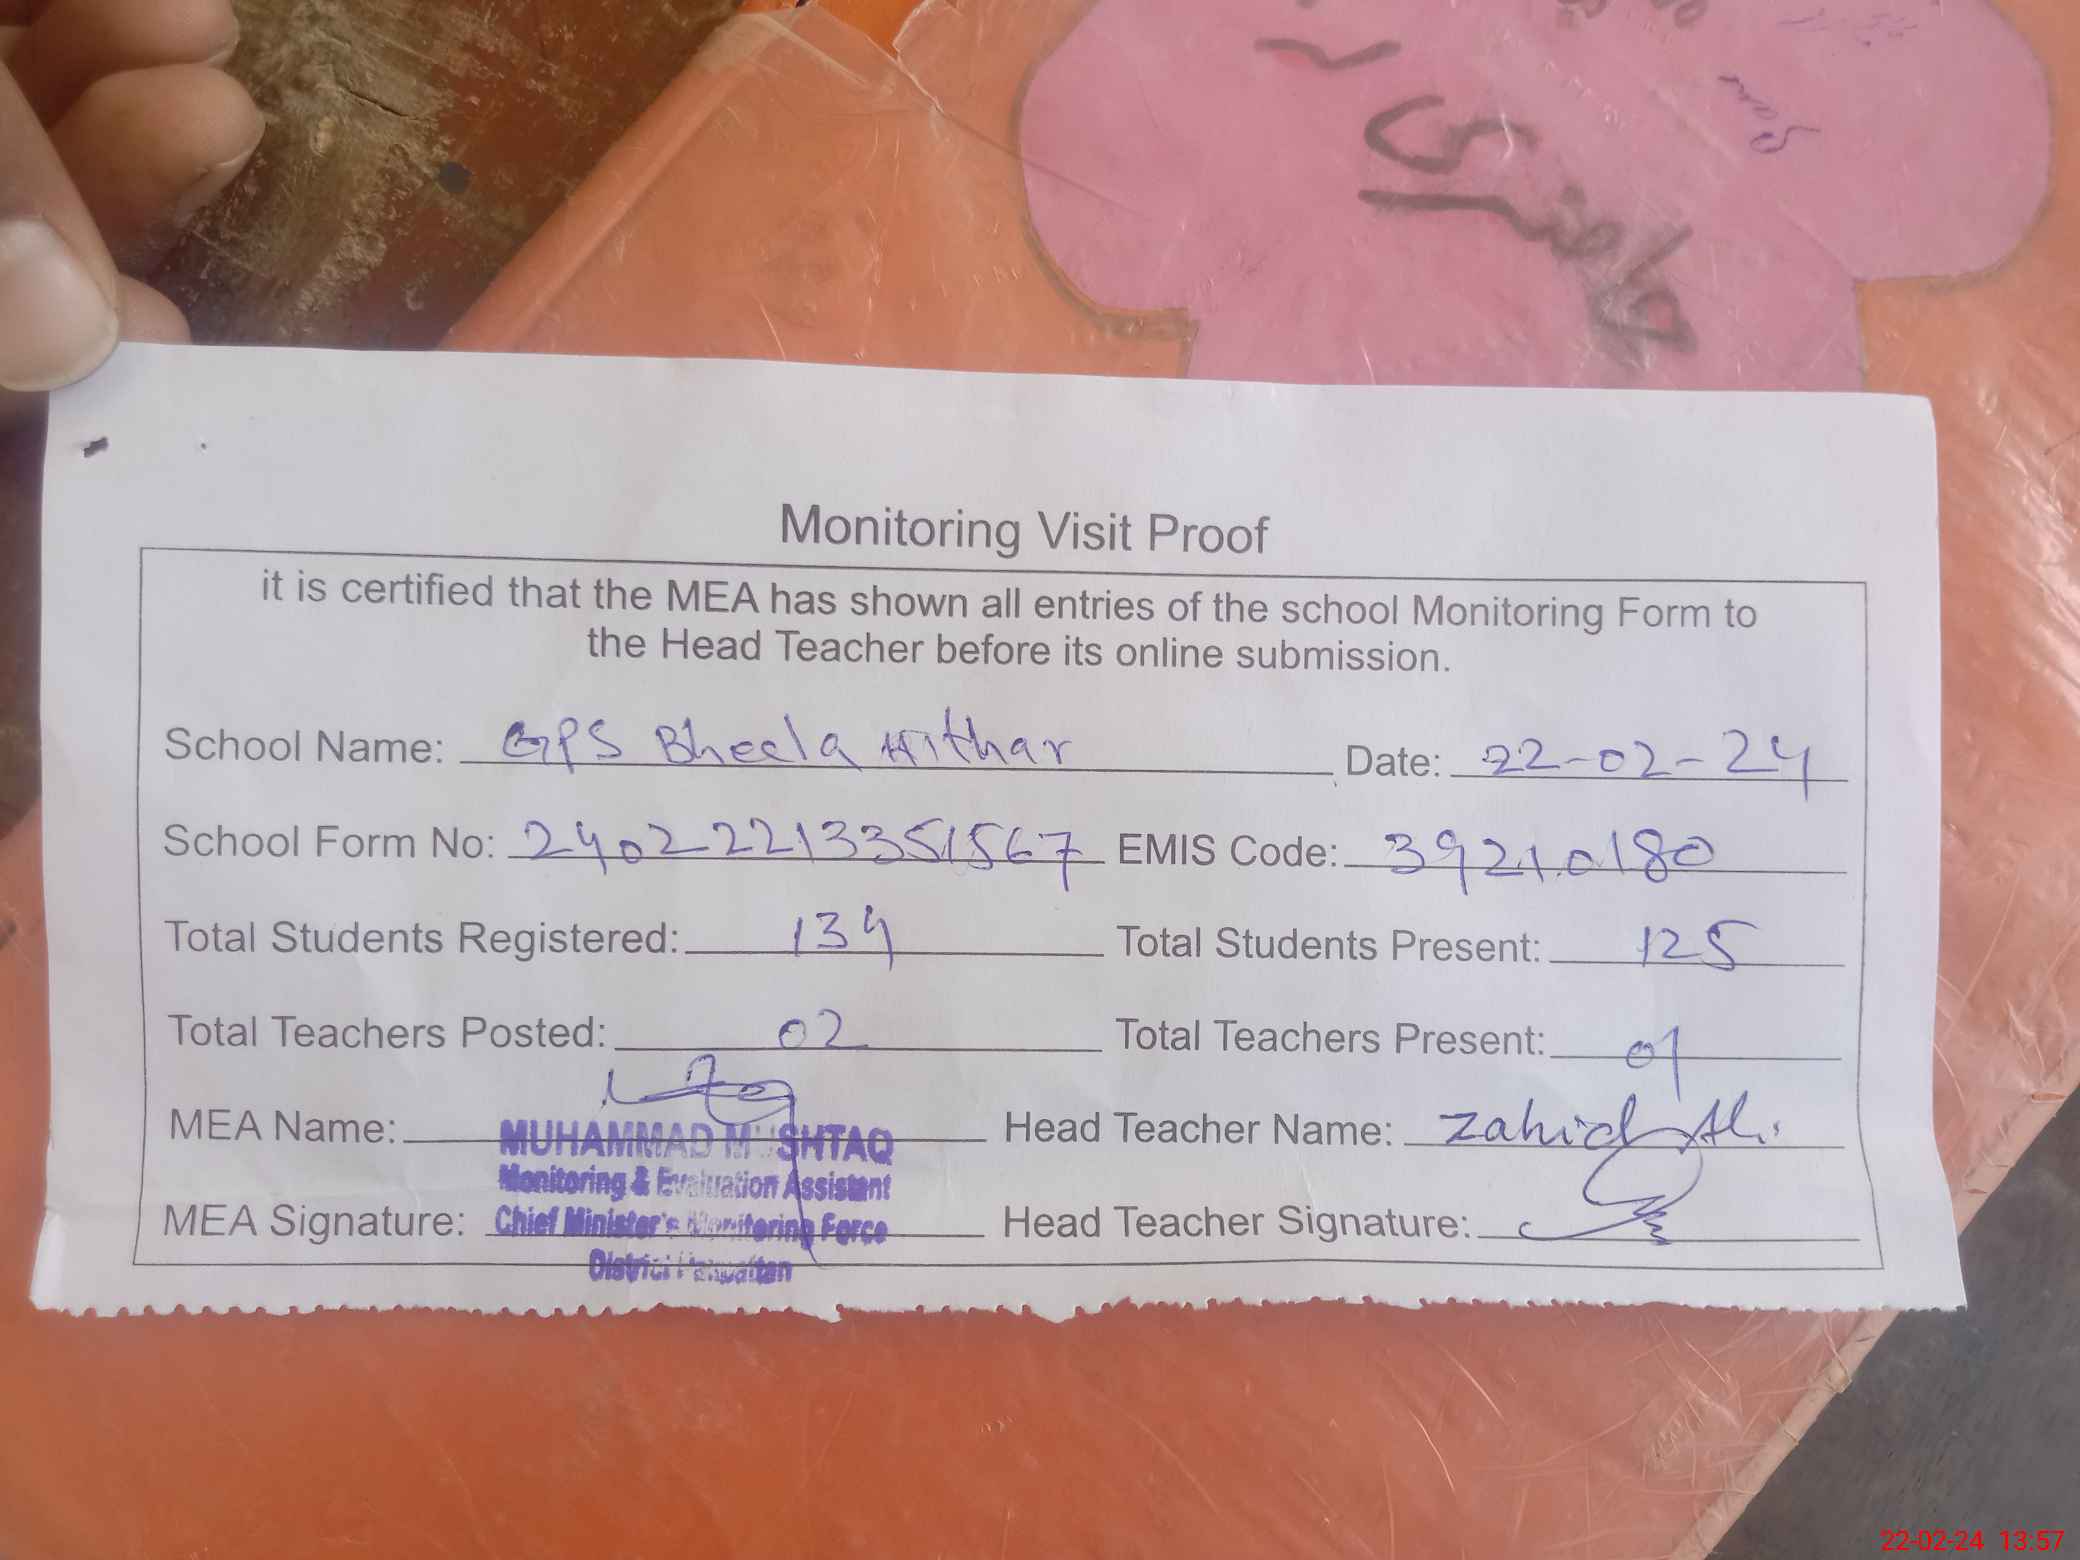 Monitoring Visit Proof
it is certified that the MEA has shown all entries of the school Monitoring Form to
the Head Teacher before its online submission.
School Name: GPS Bheela Hithar Date: 22-02-24
School Form No: 24022213351567 EMIS Code: 39210180
Total Students Registered: 134 Total Students Present: 125
Total Teachers Posted: 02 Total Teachers Present: 01
MEA Name: MUHAMMAD MUSHTAQ Head Teacher Name: Zahid Ali
Monitoring & Evaluation Assistant
MEA Signature: Chief Minister's Monitoring Force Head Teacher Signature:
District Pakpattan
22-02-24 13:57